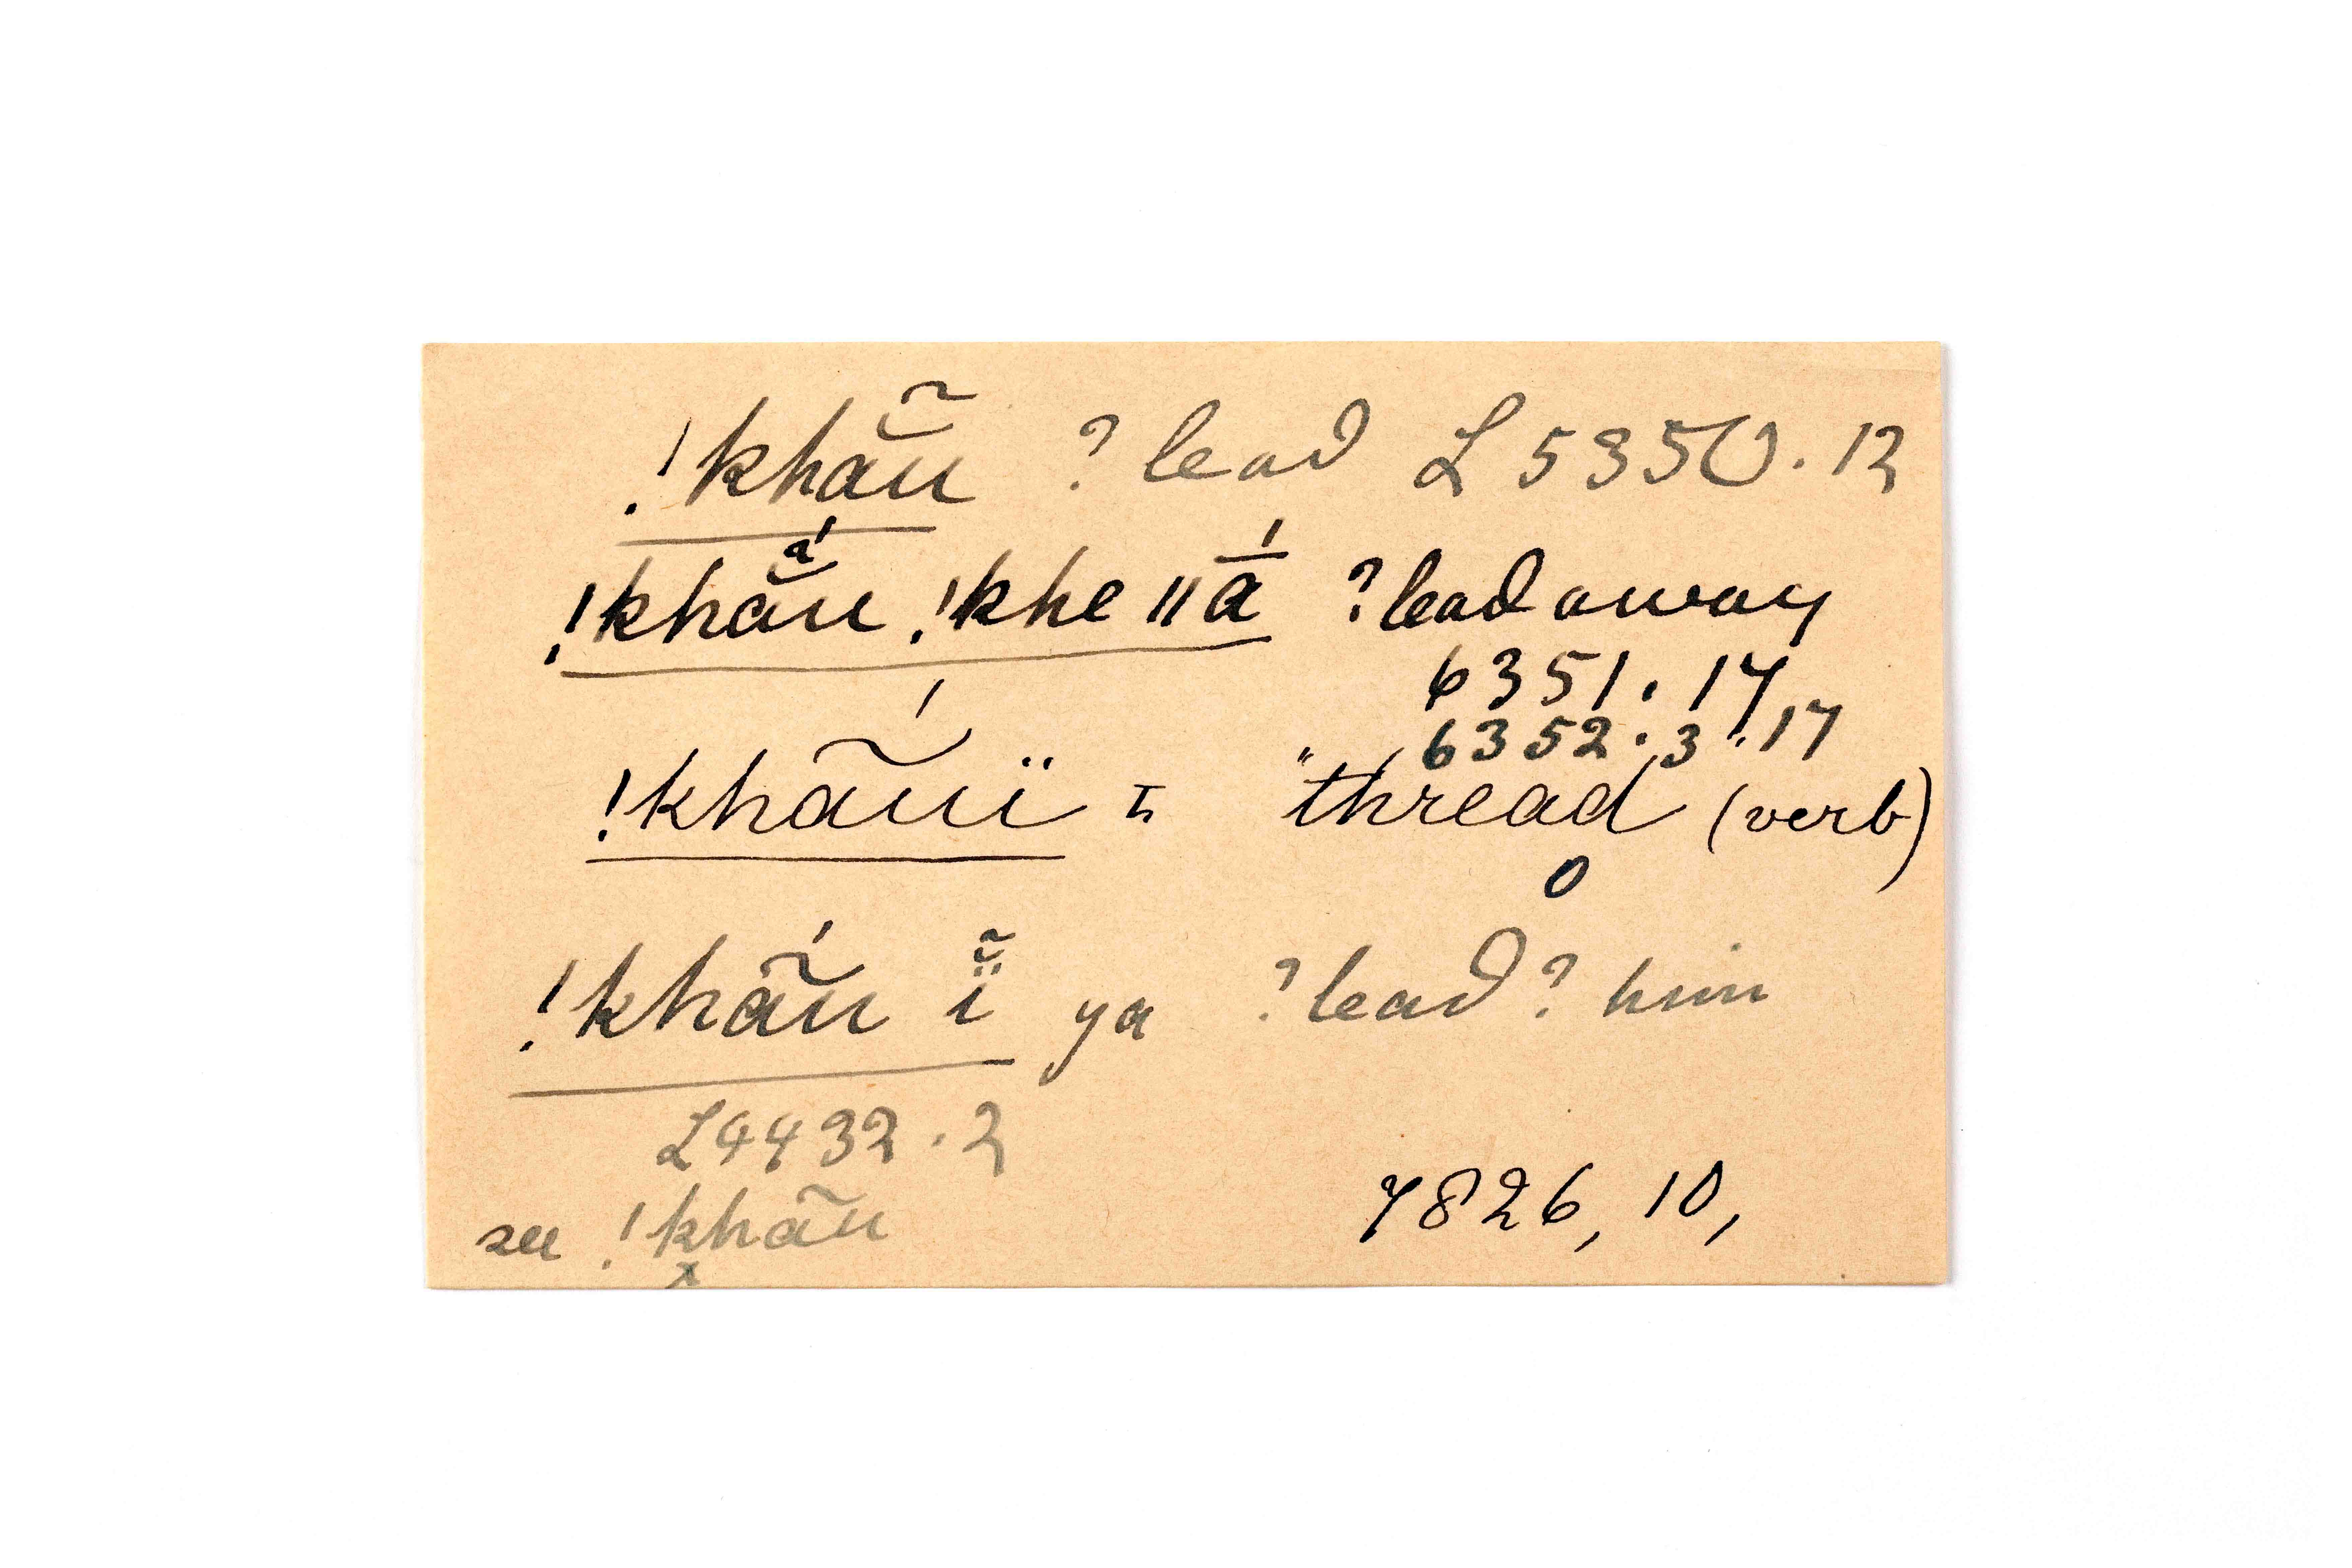 !khã̆u ?lead L 5350.12
!khã̆́u !khe ǁā́ ?lead away
6351.17,
6352.3.17
!khã́uï ɪ, "thread (verb)
0
!khã̆́u ï̆̃ ya ?lead? him
L4432.2
see !k͓hãu 7826, 10,